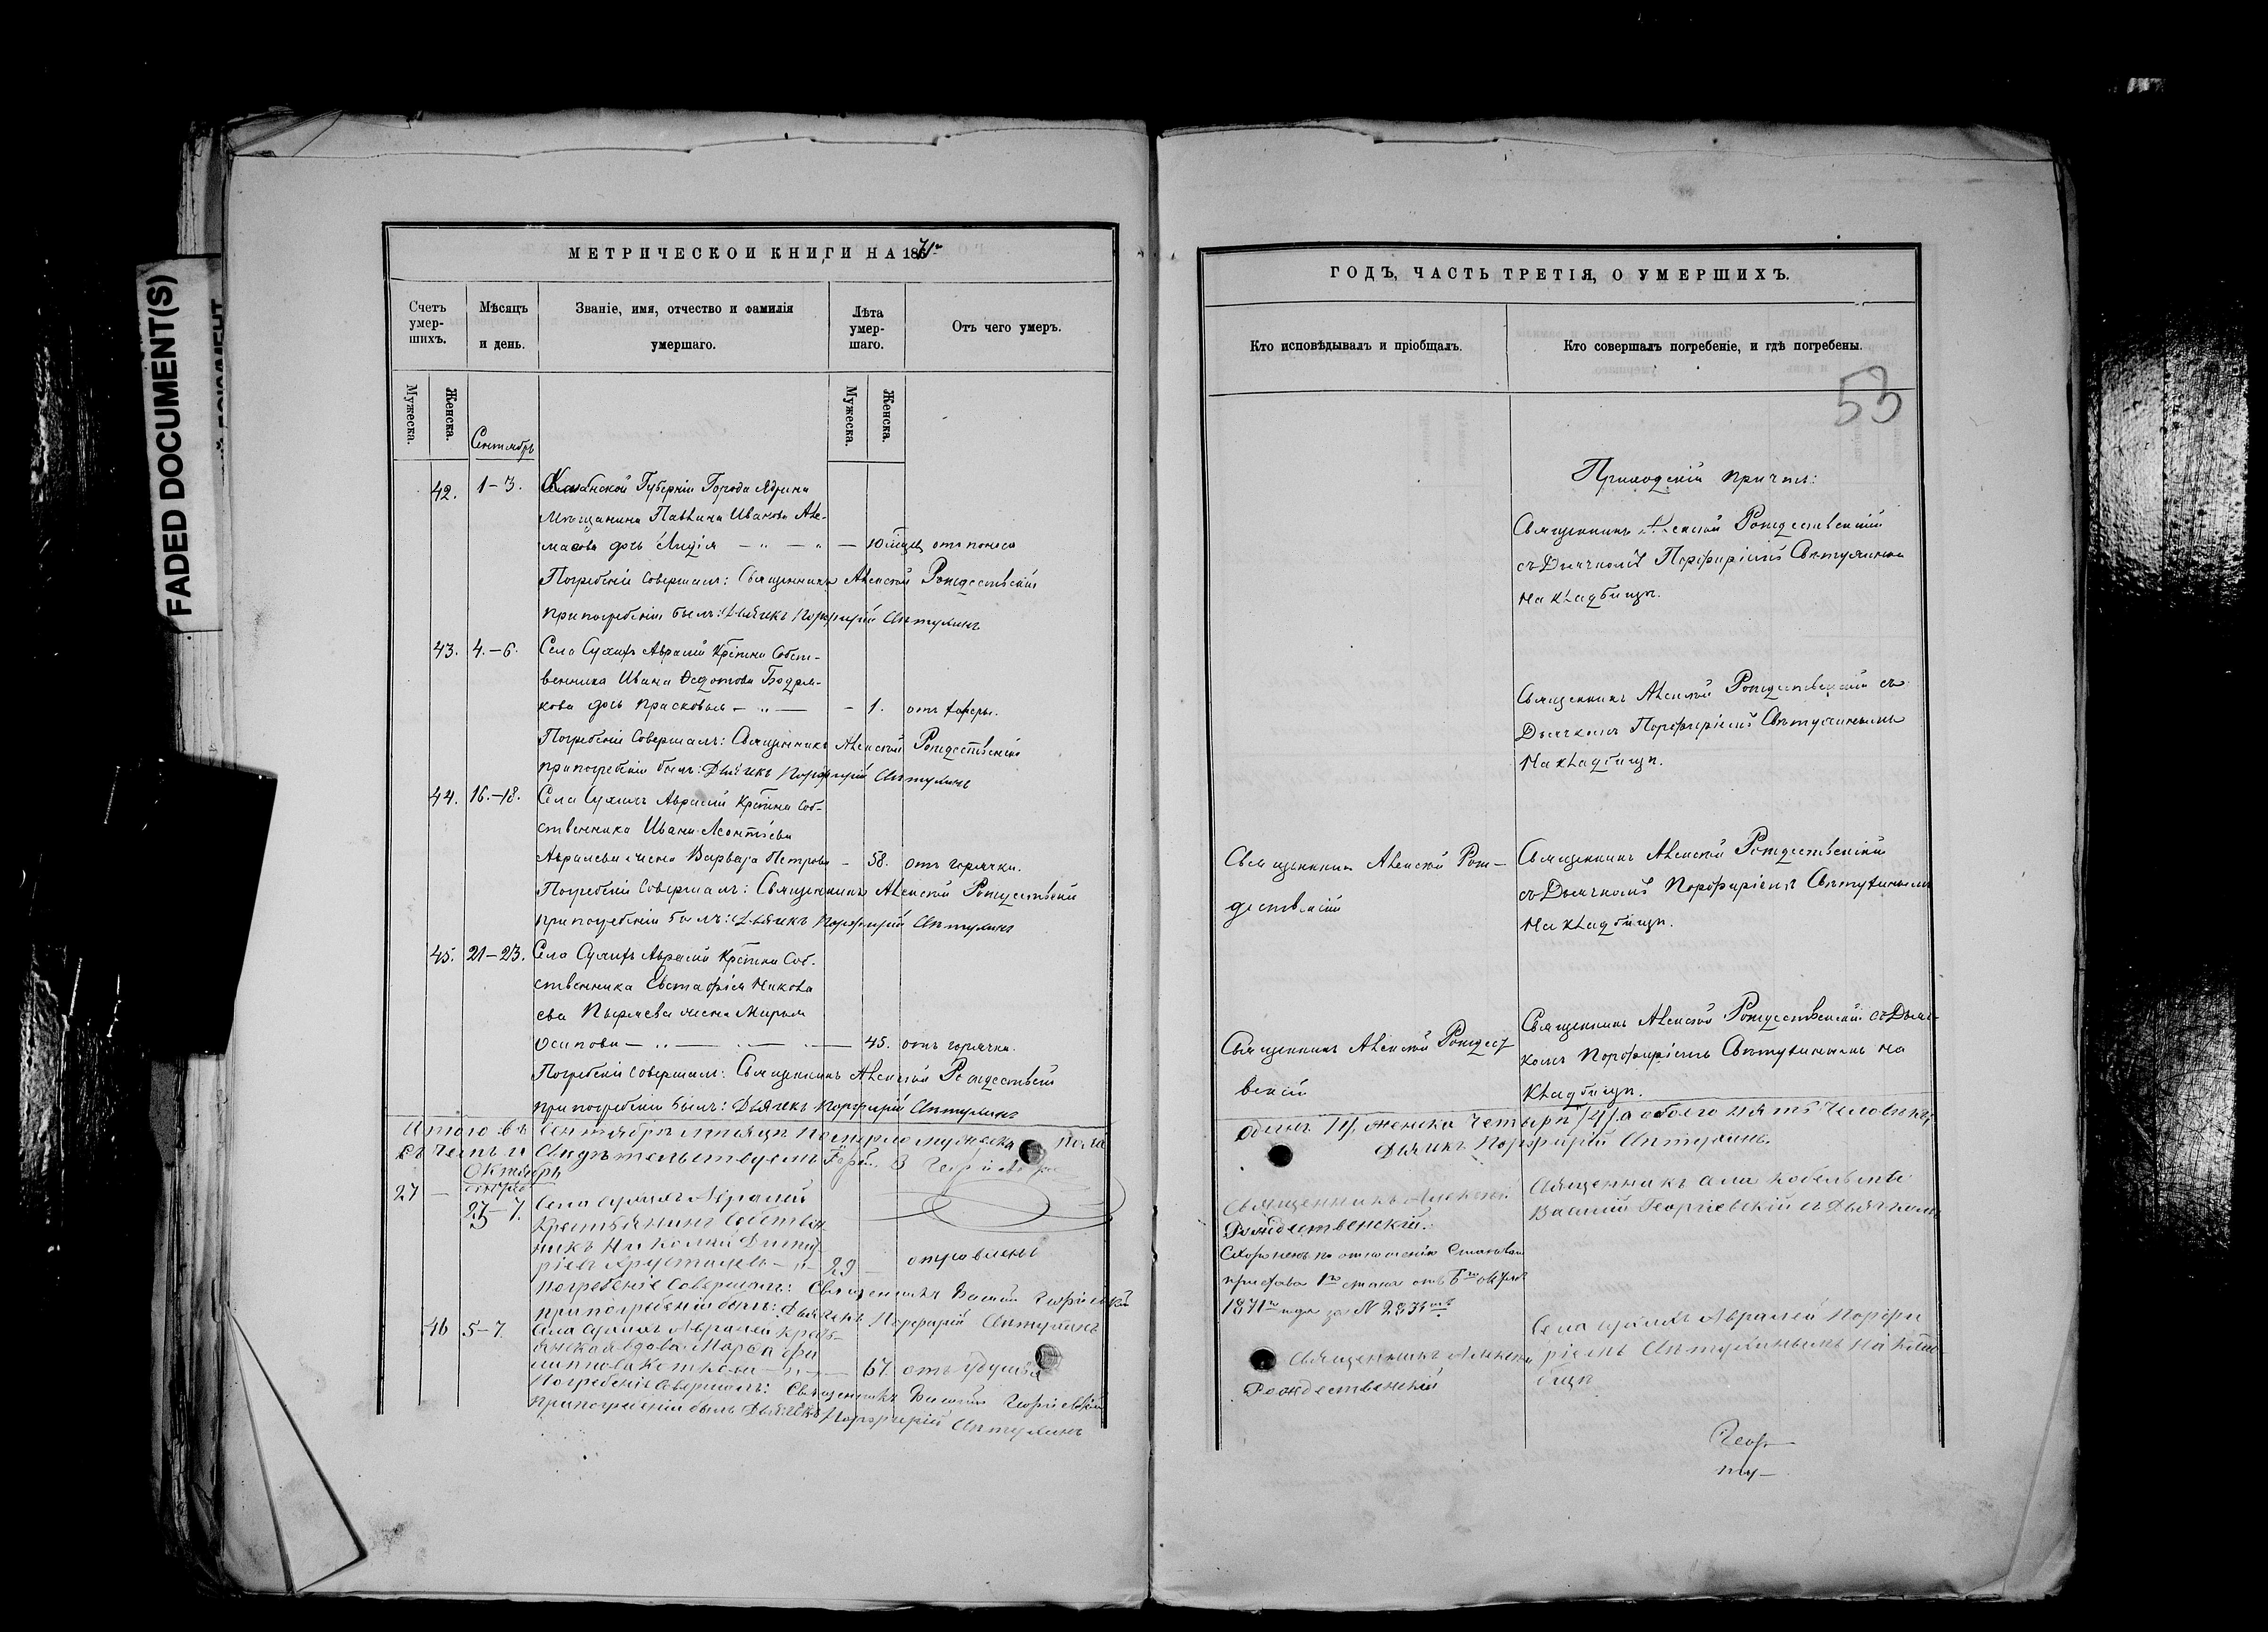 FADED DOCUMENT(S)
МЕТРИЧЕСКОЙ КНИГИ НА 1871го
Счетъ умер- шихъ.
Мѣсяцъ и день.
Званіе, имя, отчество и фамилія умершаго.
Лѣта умер- шаго.
Отъ чего умеръ.
Мужеска.
Женска.
Мужеска.
Женска.
Сентябрь
42. 1-3. Казанской Губерніи Города Ядрина
мѣщанина Павлина Иванова
дочь Лидія — " — " — 10 мѣсц. отъ поноса
Погребеніе совершалъ: Священникъ Алексѣй Рождественскій
при погребеніи былъ: Дьячекъ Порфирій Аптулинъ
43. 4.-6. Села Сухихъ Авралей Крѣтина Собст-
венника Ивана Ѳедотова
кова дочь Прасковья — " — - 1.
Погребеніе Совершалъ: Священникъ Алексѣй Рождественскій
при погребеніи былъ: Дьячекъ Порфирій Аптулинъ
44. 16.-18. Села Сухихъ Авралей Крѣтина Соб-
ственника Ивана Леонтьева
жена Варвара Петрова - 58. отъ горячки.
Погребеніе Совершалъ: Священникъ Алексѣй Рождественскій
при погребеніи былъ: Дьячекъ Порфирій Аптулинъ
45. 21-23. Села Сухихъ Авралей Крѣтина Соб-
ственника Евстафія Никола
ева жена Марья
Осипова — " — 45. отъ горячки.
Погребеніе совершалъ: Священникъ Алексѣй Рождественскій
при погребеніи былъ: Дьячекъ Порфирій Аптулинъ
Итого въ Сентябрѣ мѣсяцѣ померло мужеска пола
въ чемъ и Свидѣтельствуемъ
Октябрь
27 — 7. Села Сухихъ Авралей
Крестьянинъ Собствен
никъ Николай Дмит
ріевъ — " — 29 — отравленъ
Погребеніе Совершалъ: Священникъ Василій Георгіевскій
при погребеніи былъ: Дьячекъ Порфирій Аптулинъ
46 5-7. Села Сухихъ Авралей крест-
янская вдова Марѳа Фи
липпова — " — 67. отъ удушья
Погребеніе Совершалъ: Священникъ Василій Георгіевскій
при погребеніи былъ Дьячекъ Порфирій Аптулинъ
ГОДЪ, ЧАСТЬ ТРЕТІЯ, О УМЕРШИХЪ.
Кто исповѣдывалъ и пріобщалъ.
Кто совершалъ погребеніе, и гдѣ погребены.
53
Приходскій причтъ:
Священникъ Алексѣй Рождественскій
съ Дьячкомъ Порфиріемъ Аптулинымъ
на кладбищѣ.
Священникъ Алексѣй Рождественскій съ
Дьячкомъ Порфиріемъ Аптулинымъ
на кладбищѣ.
Священникъ Алексѣй Рож-
дественскій
Священникъ Алексѣй Рождественскій
съ Дьячкомъ Порфиріемъ Аптулинымъ
на кладбищѣ.
Священникъ Алексѣй Рождест
венскій
Священникъ Алексѣй Рождественскій съ Дьяч-
комъ Порфиріемъ Аптулинымъ на
кладбищѣ.
одинъ /1/, женска четыре /4/, а обоего пять человѣкъ,
Дьячекъ Порфирій Аптулинъ.
Священникъ Алексѣй
Рождественскій.
Схороненъ по отношенію Становаго
пристава 1го стана отъ
1871го года за №
Священникъ села
Василій Георгіевскій съ Дьячкомъ
Священникъ Алексѣй
Рождественскій
Села Сухихъ Авралей Порфи
ріемъ Аптулинымъ на клад-
бищѣ